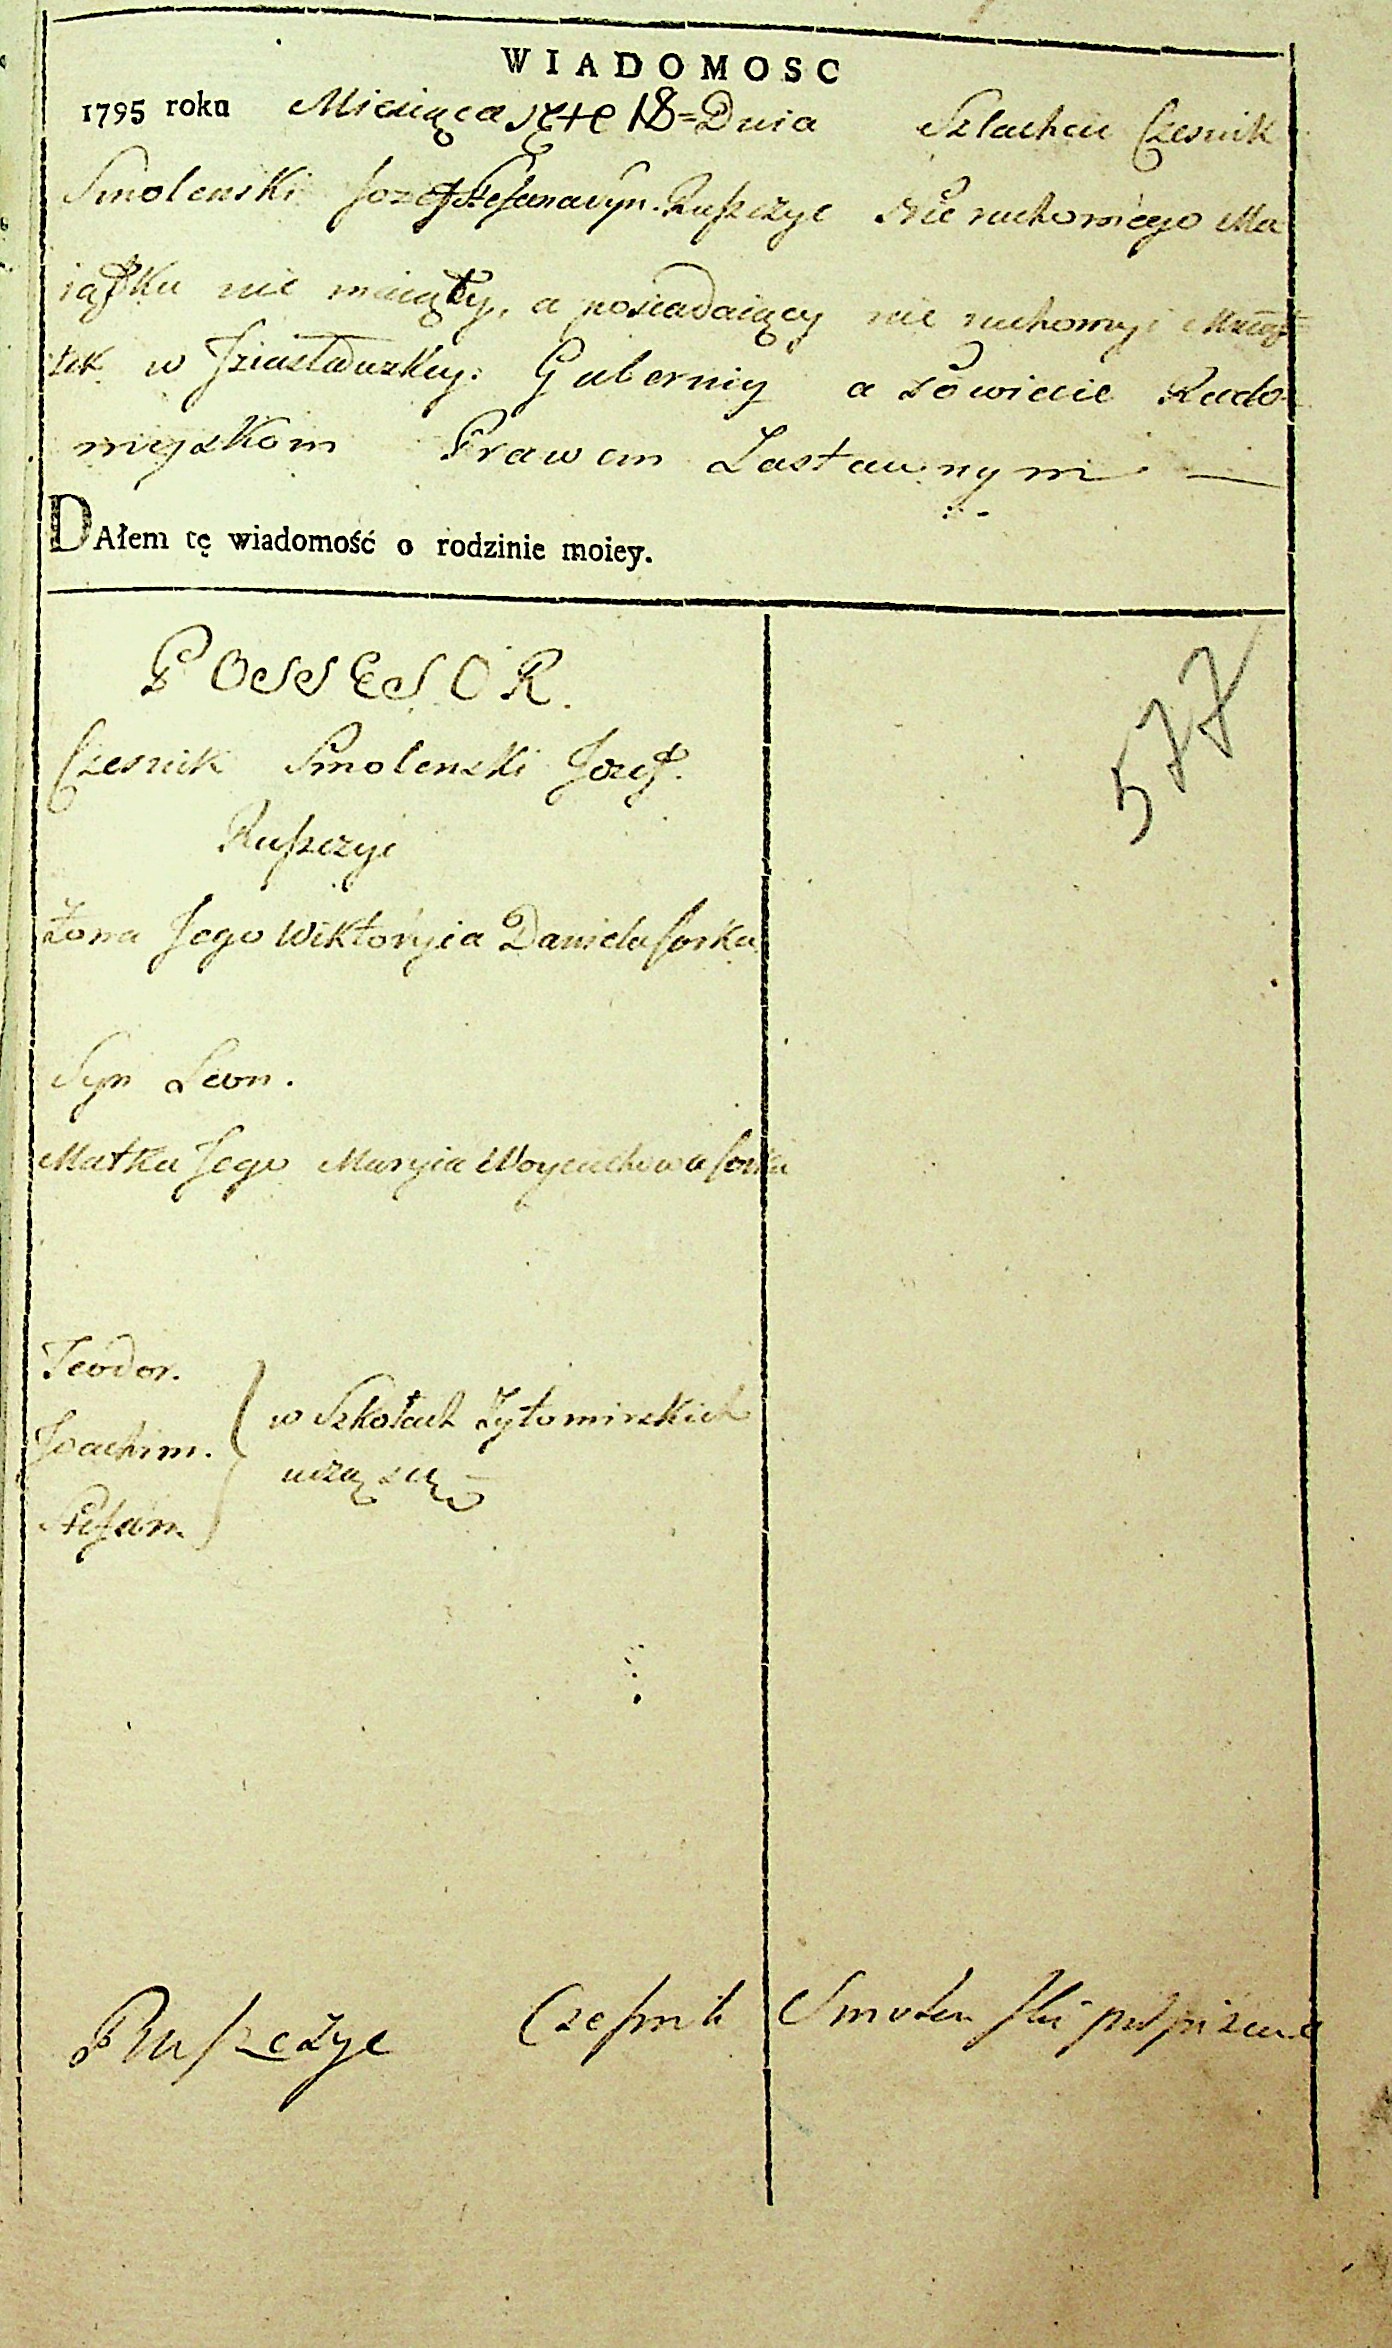 WIADOMOSC
1795 roku Miesiąca 18 = Dnia Szlachcic Czesnik
Smolenski Jozef Stefana syn. Ruszczyc Nie ruchomego Ma
iątku nie maiący, a posiadaiący nie ruchomyi Maią
tek w Iziasławskey: Gubernij a Powiecie Rado
myskom Prawem Zastawnym —
DAłem tę wiadomość o rodzinie moiey.
POSSESOR.
Czesnik Smolenski Jozef.
Ruszczyc
577
Żona Jego Wiktoryia Daniela corka
Syn Leon.
Matka Jego Maryia Woyciechowa corka
Teodor.
Joachim.
Stefan
w Szkołach Żytomirskich
uczą się
Ruszczyc Czesnik Smolenski